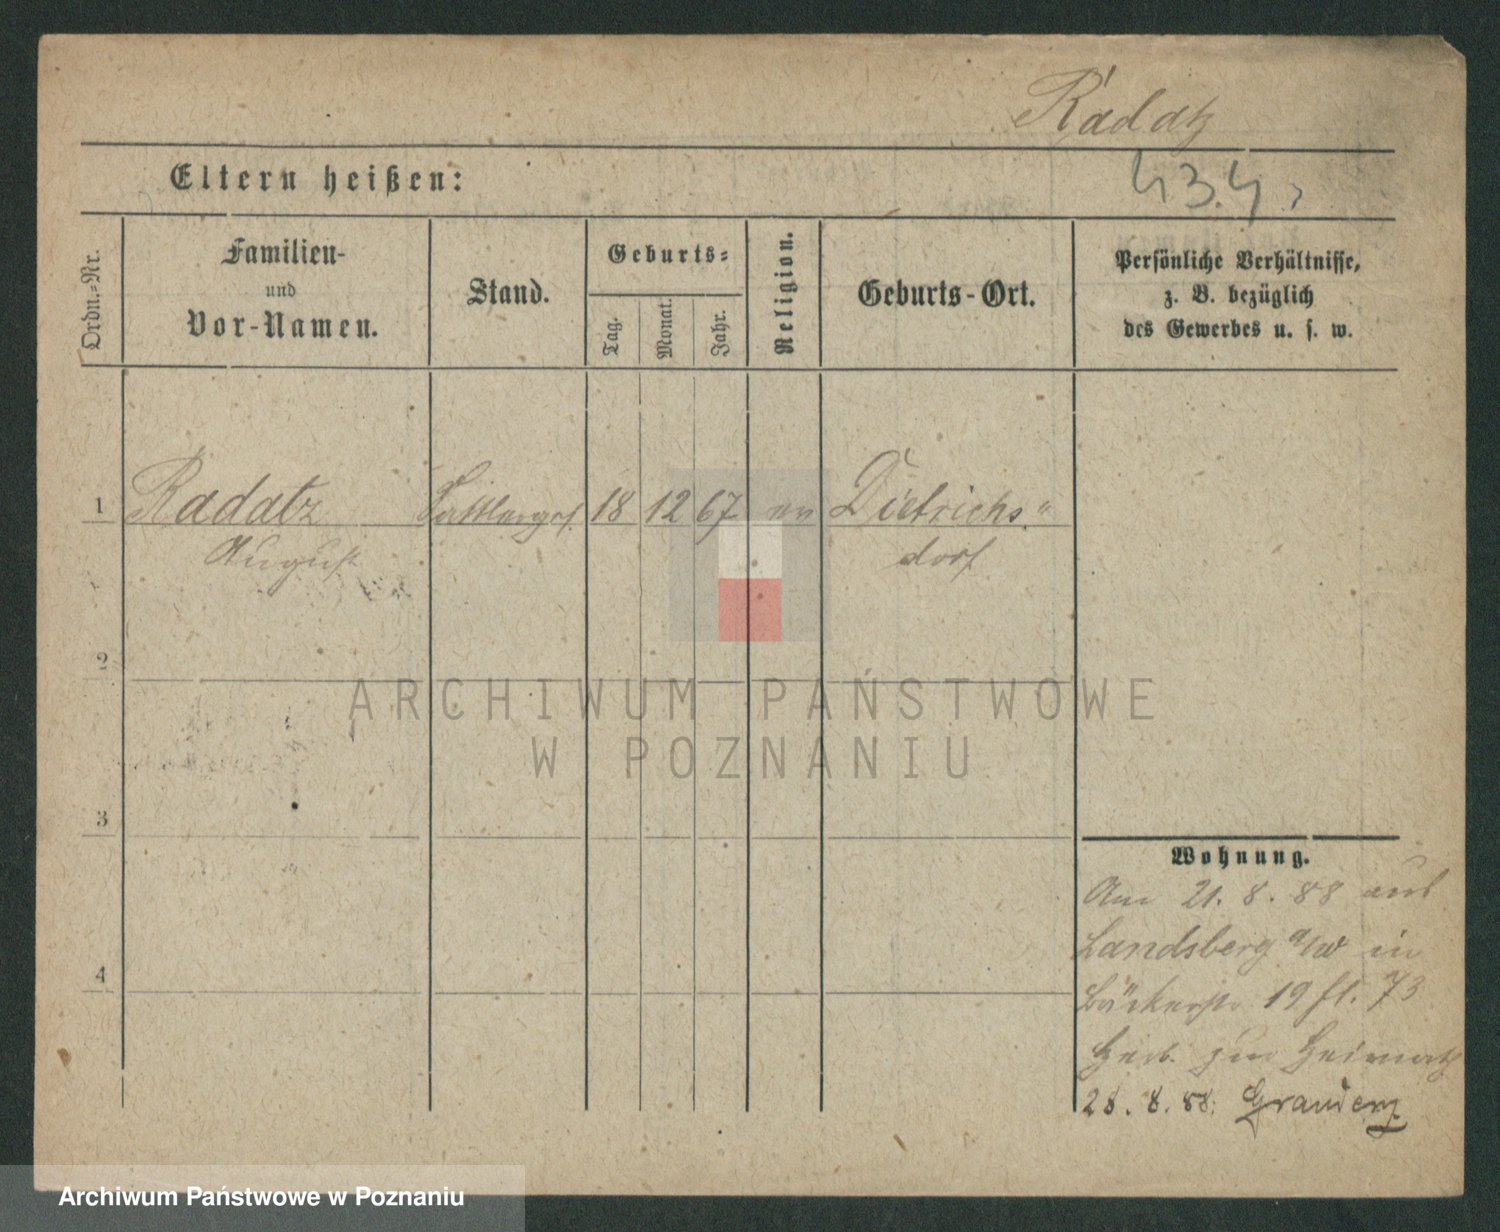 Radatz
Eltern heißen:
43.4
Ordn.-Nr.
Familien-
und
Vor-Namen.
Stand.
Geburts-
Tag.
Monat.
Jahr.
Religion.
Geburts-Ort.
Persönliche Verhältnisse,
z. B. bezüglich
des Gewerbes u. s. w.
1 Radatz Sattlerges. 18 12 67 ev Dietrichs„
August dorf
2
ARCHIWUM PAŃSTWOWE
W POZNANIU
3
Wohnung.
Am 21. 8. 88 aus
Landsberg a/W in
Bäckerstr 19 fl. 73
Herb. zur Heimath
4
28. 8. 88. Graudenz
Archiwum Państwowe w Poznaniu